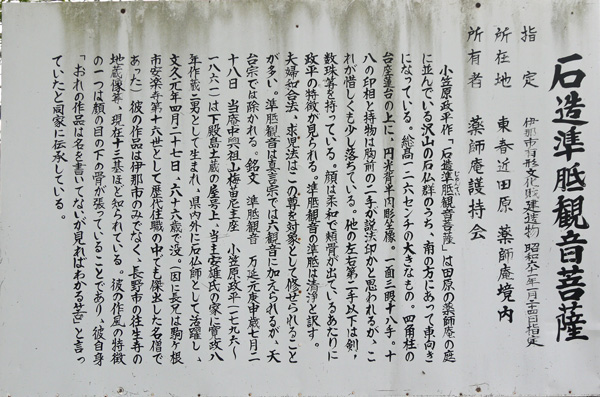 石造準胝観音菩薩
指定 伊那市有形文化財建造物 昭和六十一年一月十四日指定
所在地 東春近田原 薬師庵境内
所有者 薬師庵護持会
小笠原政平作「石造準胝観音菩薩」は田原の薬師庵の庭
に並んでいる沢山の石仏群のうち、南の方にあって東向き
になっている。総高一・二六センチの大きなもの。四角柱の
台座蓮台の上に、円光背半肉彫坐像。一面三眼十八手。十
八の印相と持物は胸前の二手が説法印かと思われるが、こ
れが惜しくも少し落っている。他の左右第一手以下は剣,
数珠等を持っている。顔は柔和で頬骨が出ているあたりに
政平の特徴が見られる。準胝観音の準胝は清浄と訳す。
夫婦和合法、求児法はこの尊を対象として修せられること
が多い。準胝観音は真言宗では六観音に加えられるが、天
台宗では除かれる。銘文 準胝観音 万延元庚申歳七月二
十八日 当庵中興祖山梅苗尼主座 小笠原政平一七九六〜
一八六一は下殿島土蔵の屋号上、当主安雄氏の家に寛政八
年作蔵二男として生まれ、県内外に石仏師として活躍し、
文久元年四月二十七日、六十六歳で没。(因に長兄は駒ヶ根
市安楽寿第十六世として歴代住職の中でも傑出した名僧で
あった) 彼の作品は伊那市のみでなく、長野市の往生寺の
地蔵像等、現在十三基ほど知られている。彼の作風の特徴
の一つは顔の目の下の骨が張っていることであり、彼自身
「おれの作品は名を書いてないが見ればわかる筈」と言っ
ていたと同家に伝承している。